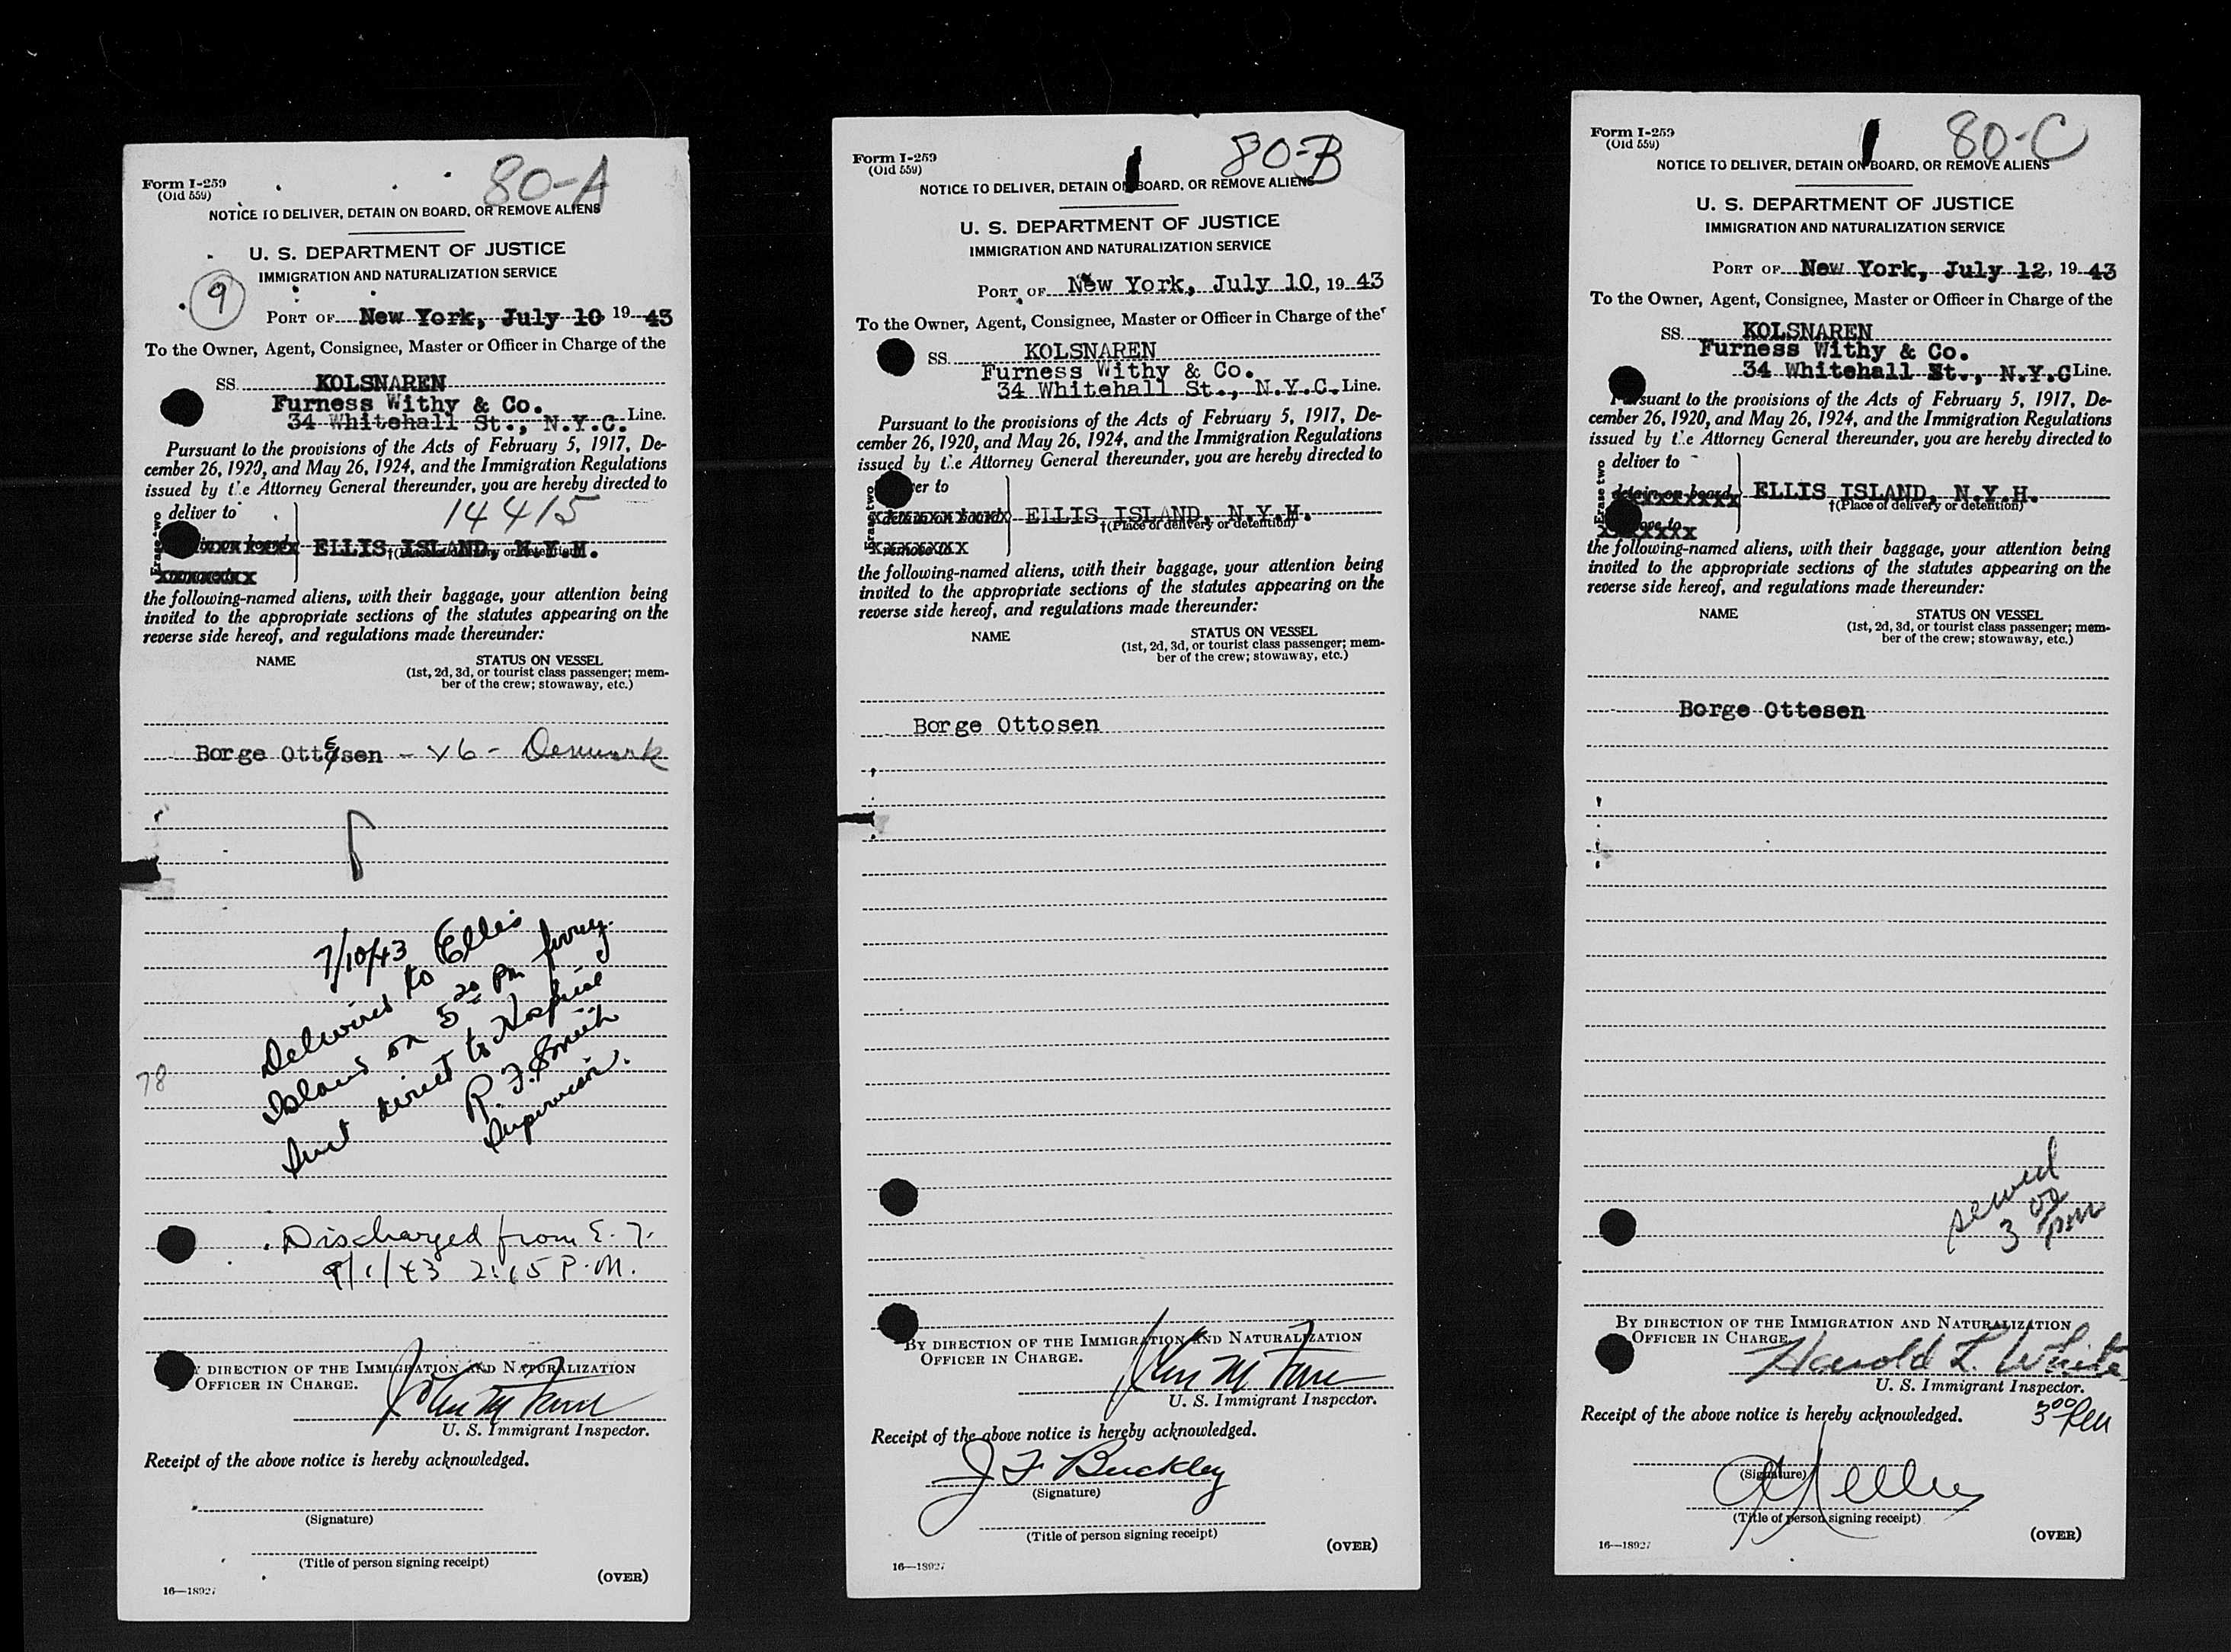 80-A
Form I-259
(Old 559)
NOTICE TO DELIVER, DETAIN ON BOARD, OR REMOVE ALIENS
U. S. DEPARTMENT OF JUSTICE
IMMIGRATION AND NATURALIZATION SERVICE
9
PORT OF New York, July 10 19 43
To the Owner, Agent, Consignee, Master or Officer in Charge of the
SS. KOLSNAREN
Furness Withy & Co.
34 Whitehall St., N.Y.C. Line.
Pursuant to the provisions of the Acts of February 5, 1917, De-
cember 26, 1920, and May 26, 1924, and the Immigration Regulations
issued by the Attorney General thereunder, you are hereby directed to
14415
Erase two
deliver to
ELLIS ISLAND, N.Y.H.
†(Place of delivery or detention)
the following-named aliens, with their baggage, your attention being
invited to the appropriate sections of the statutes appearing on the
reverse side hereof, and regulations made thereunder:
NAME STATUS ON VESSEL
(1st, 2d, 3d, or tourist class passenger; mem-
ber of the crew; stowaway, etc.)
Borge Ottesen - 46 - Denmark
7/10/43
Delivered to Ellis
Island on 5 20 Pm ferry.
Sent direct to Hospital
R. F. Smith
Supervisor.
78
Discharged from E. I.
9/1/43 2:15 P.M.
BY DIRECTION OF THE IMMIGRATION AND NATURALIZATION
OFFICER IN CHARGE.
U. S. Immigrant Inspector.
Receipt of the above notice is hereby acknowledged.
(Signature)
(Title of person signing receipt)
(OVER)
16—18927
80-B
Form I-259
(Old 559)
NOTICE TO DELIVER, DETAIN ON BOARD, OR REMOVE ALIENS
U. S. DEPARTMENT OF JUSTICE
IMMIGRATION AND NATURALIZATION SERVICE
PORT OF New York, July 10, 19 43
To the Owner, Agent, Consignee, Master or Officer in Charge of the
SS. KOLSNAREN
Furness Withy & Co.
34 Whitehall St., N.Y.C. Line.
Pursuant to the provisions of the Acts of February 5, 1917, De-
cember 26, 1920, and May 26, 1924, and the Immigration Regulations
issued by the Attorney General thereunder, you are hereby directed to
Erase two
deliver to
ELLIS ISLAND, N.Y.H.
†(Place of delivery or detention)
the following-named aliens, with their baggage, your attention being
invited to the appropriate sections of the statutes appearing on the
reverse side hereof, and regulations made thereunder:
NAME STATUS ON VESSEL
(1st, 2d, 3d, or tourist class passenger; mem-
ber of the crew; stowaway, etc.)
Borge Ottosen
BY DIRECTION OF THE IMMIGRATION AND NATURALIZATION
OFFICER IN CHARGE.
U. S. Immigrant Inspector.
Receipt of the above notice is hereby acknowledged.
J F Buckley
(Signature)
(Title of person signing receipt)
(OVER)
16—18927
80-C
Form I-259
(Old 559)
NOTICE TO DELIVER, DETAIN ON BOARD, OR REMOVE ALIENS
U. S. DEPARTMENT OF JUSTICE
IMMIGRATION AND NATURALIZATION SERVICE
PORT OF New York, July 12, 19 43
To the Owner, Agent, Consignee, Master or Officer in Charge of the
SS. KOLSNAREN
Furness Withy & Co.
34 Whitehall St., N.Y.C Line.
Pursuant to the provisions of the Acts of February 5, 1917, De-
cember 26, 1920, and May 26, 1924, and the Immigration Regulations
issued by the Attorney General thereunder, you are hereby directed to
Erase two
deliver to
detain on board
ELLIS ISLAND, N.Y.H.
†(Place of delivery or detention)
the following-named aliens, with their baggage, your attention being
invited to the appropriate sections of the statutes appearing on the
reverse side hereof, and regulations made thereunder:
NAME STATUS ON VESSEL
(1st, 2d, 3d, or tourist class passenger; mem-
ber of the crew; stowaway, etc.)
Borge Ottesen
served
3 02
pm
BY DIRECTION OF THE IMMIGRATION AND NATURALIZATION
OFFICER IN CHARGE.
Harold L. White
U. S. Immigrant Inspector.
Receipt of the above notice is hereby acknowledged.
3 00
(Signature)
(Title of person signing receipt)
(OVER)
16—18927